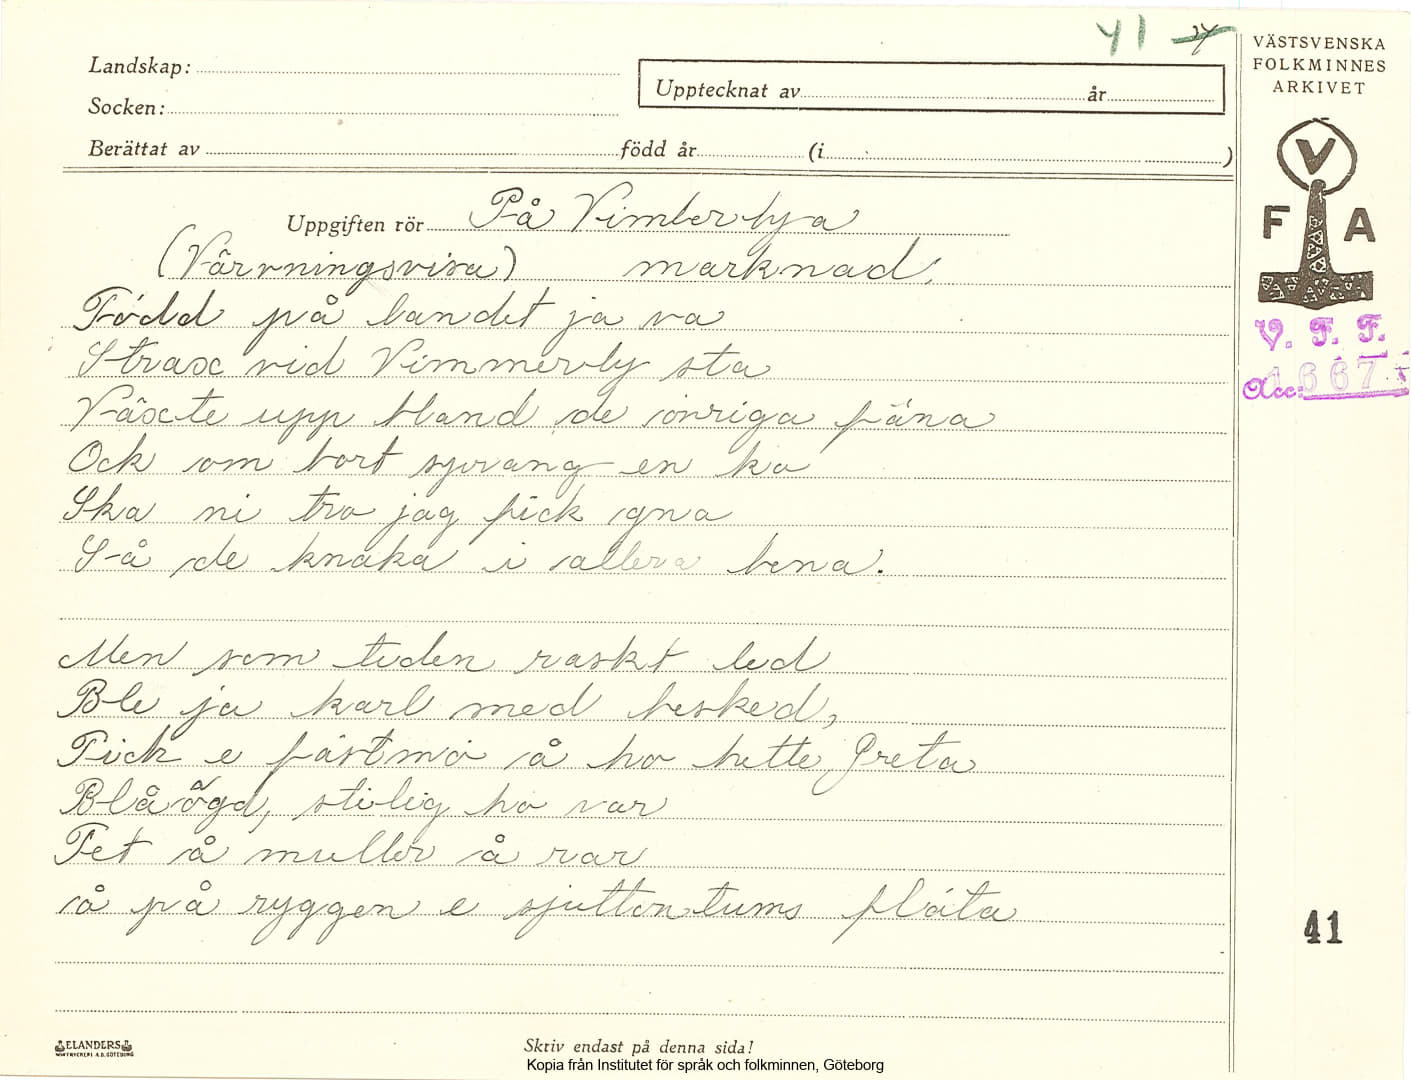 41 24
VÄSTSVENSKA
FOLKMINNES
ARKIVET
Landskap:
Socken:
Upptecknat av år
Berättat av född år (i )
Uppgiften rör På Vimberbya
(Värvningsvisa) marknad.
Född på landet ja va
Strax vid Vimmerby sta
Växte upp bland de övriga fäna
Ock om bort sprang en ko
Ska ni tro jag fick gno
Så de knaka i allera bena.
Men som tiden raskt led
Ble ja karl med besked,
Fick e fästmö å ho hette Greta
Blåögd, stilig ho var
Fet å muller å rar
å på ryggen e sjuttontums fläta
V
F A
V. F. F.
Acc: 1667
41
ELANDERS
BOKTRYCKERI A.B. GÖTEBORG
Skriv endast på denna sida!
Kopia från Institutet för språk och folkminnen, Göteborg